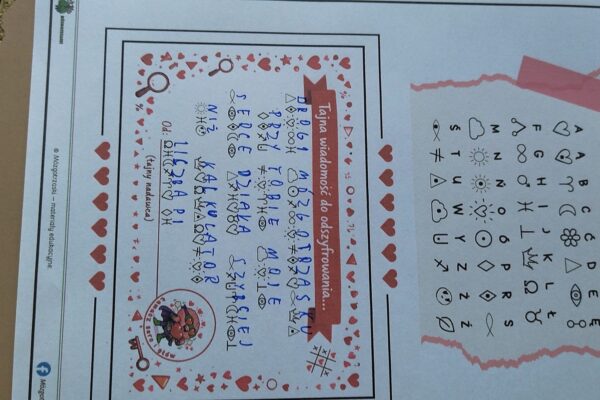 Tajna wiadomość do odszyfrowania...
DROGI MÓZGOTRZASKU
PRZY TOBIE MOJE
SERCE DZIAŁA SZYBCIEJ
NIŻ KALKULATOR
Od: LICZBA PI
(tajny nadawca)
A Ą B C Ć D E Ę
F G H I J K L Ł
M N Ń O Ó P R S
Ś T U W Y Z Ź Ż
© Mózgotrzaski – materiały edukacyjne